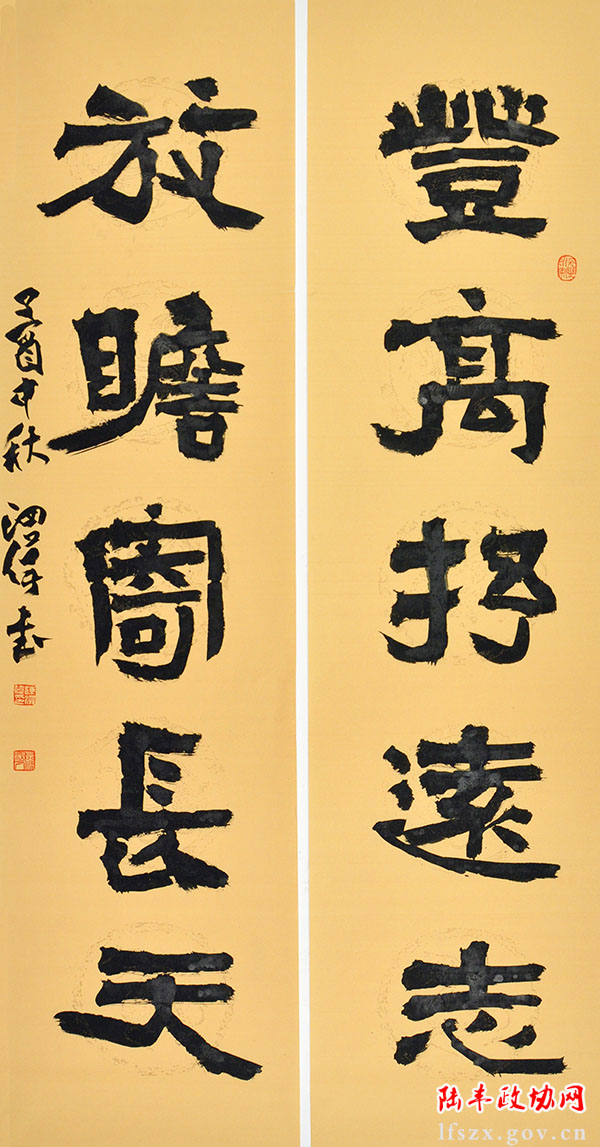 登高抒遠志
放瞻寄長天
酉中秋
书
陆丰政协网
lfszx.gov.cn